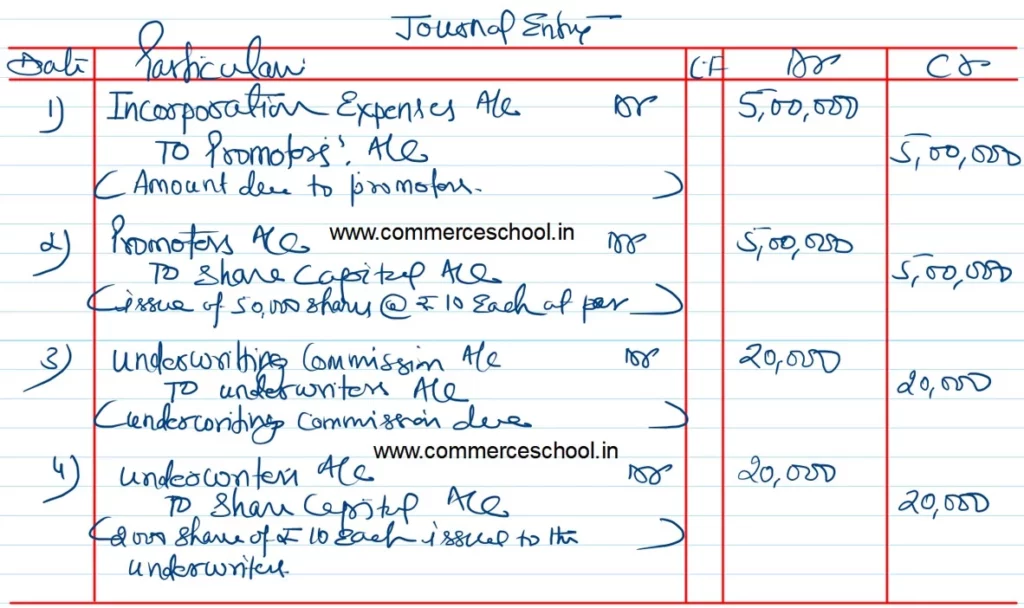 Journal Entry
Date Particulars LF Dr Cr
1) Incorporation Expenses A/c Dr 5,00,000
To Promoters' A/c 5,00,000
(Amount due to promotors.)
2) Promoters A/c www.commerceschool.in Dr 5,00,000
To Share Capital A/c 5,00,000
(issue of 50,000 shares @ ₹ 10 Each at par)
3) underwriting Commission A/c Dr 20,000
To underwriters A/c 20,000
(underwriting Commission due)
www.commerceschool.in
4) underwriters A/c Dr 20,000
To Share Capital A/c 20,000
(2000 Share of ₹ 10 Each issued to the)
underwriters.